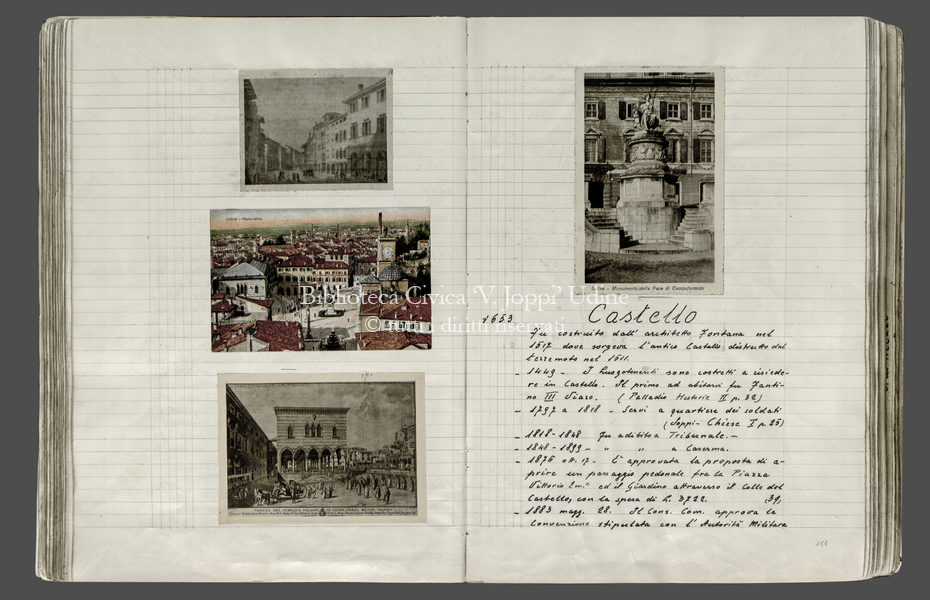 Udine - Panorama
VEDUTA DEL PUBBLICO PALAZZO DI UDINE
Udine - Monumento della Pace di Campoformido
Biblioteca Civica 'V. Joppi' Udine
© tutti i diritti riservati
1653
Castello
Fu costruito dall' architetto Fontana nel
1517 dove sorgeva l'antico Castello distrutto dal
terremoto nel 1511.
- 1449 - I Luogotenenti sono costretti a risiede-
re in Castello. Il primo ad abitarvi fu Fanti-
no III Viaro. (Palladio Historie II p. 32)
- 1797 a 1818 - Servì a quartiere dei soldati
(Joppi - Chiese I p. 25)
- 1818-1848 Fu adibito a Tribunale. -
- 1848-1899 - " " a Caserma.
- 1876 ott. 17 - E' approvata la proposta di a-
prire un passaggio pedonale fra la Piazza
Vittorio Em.e ed il Giardino attraverso il Colle del
Castello, con la spesa di L. 3722. (39)
- 1883 magg. 28. Il Cons. Com. approva la
convenzione stipulata con l'Autorità Militare
158